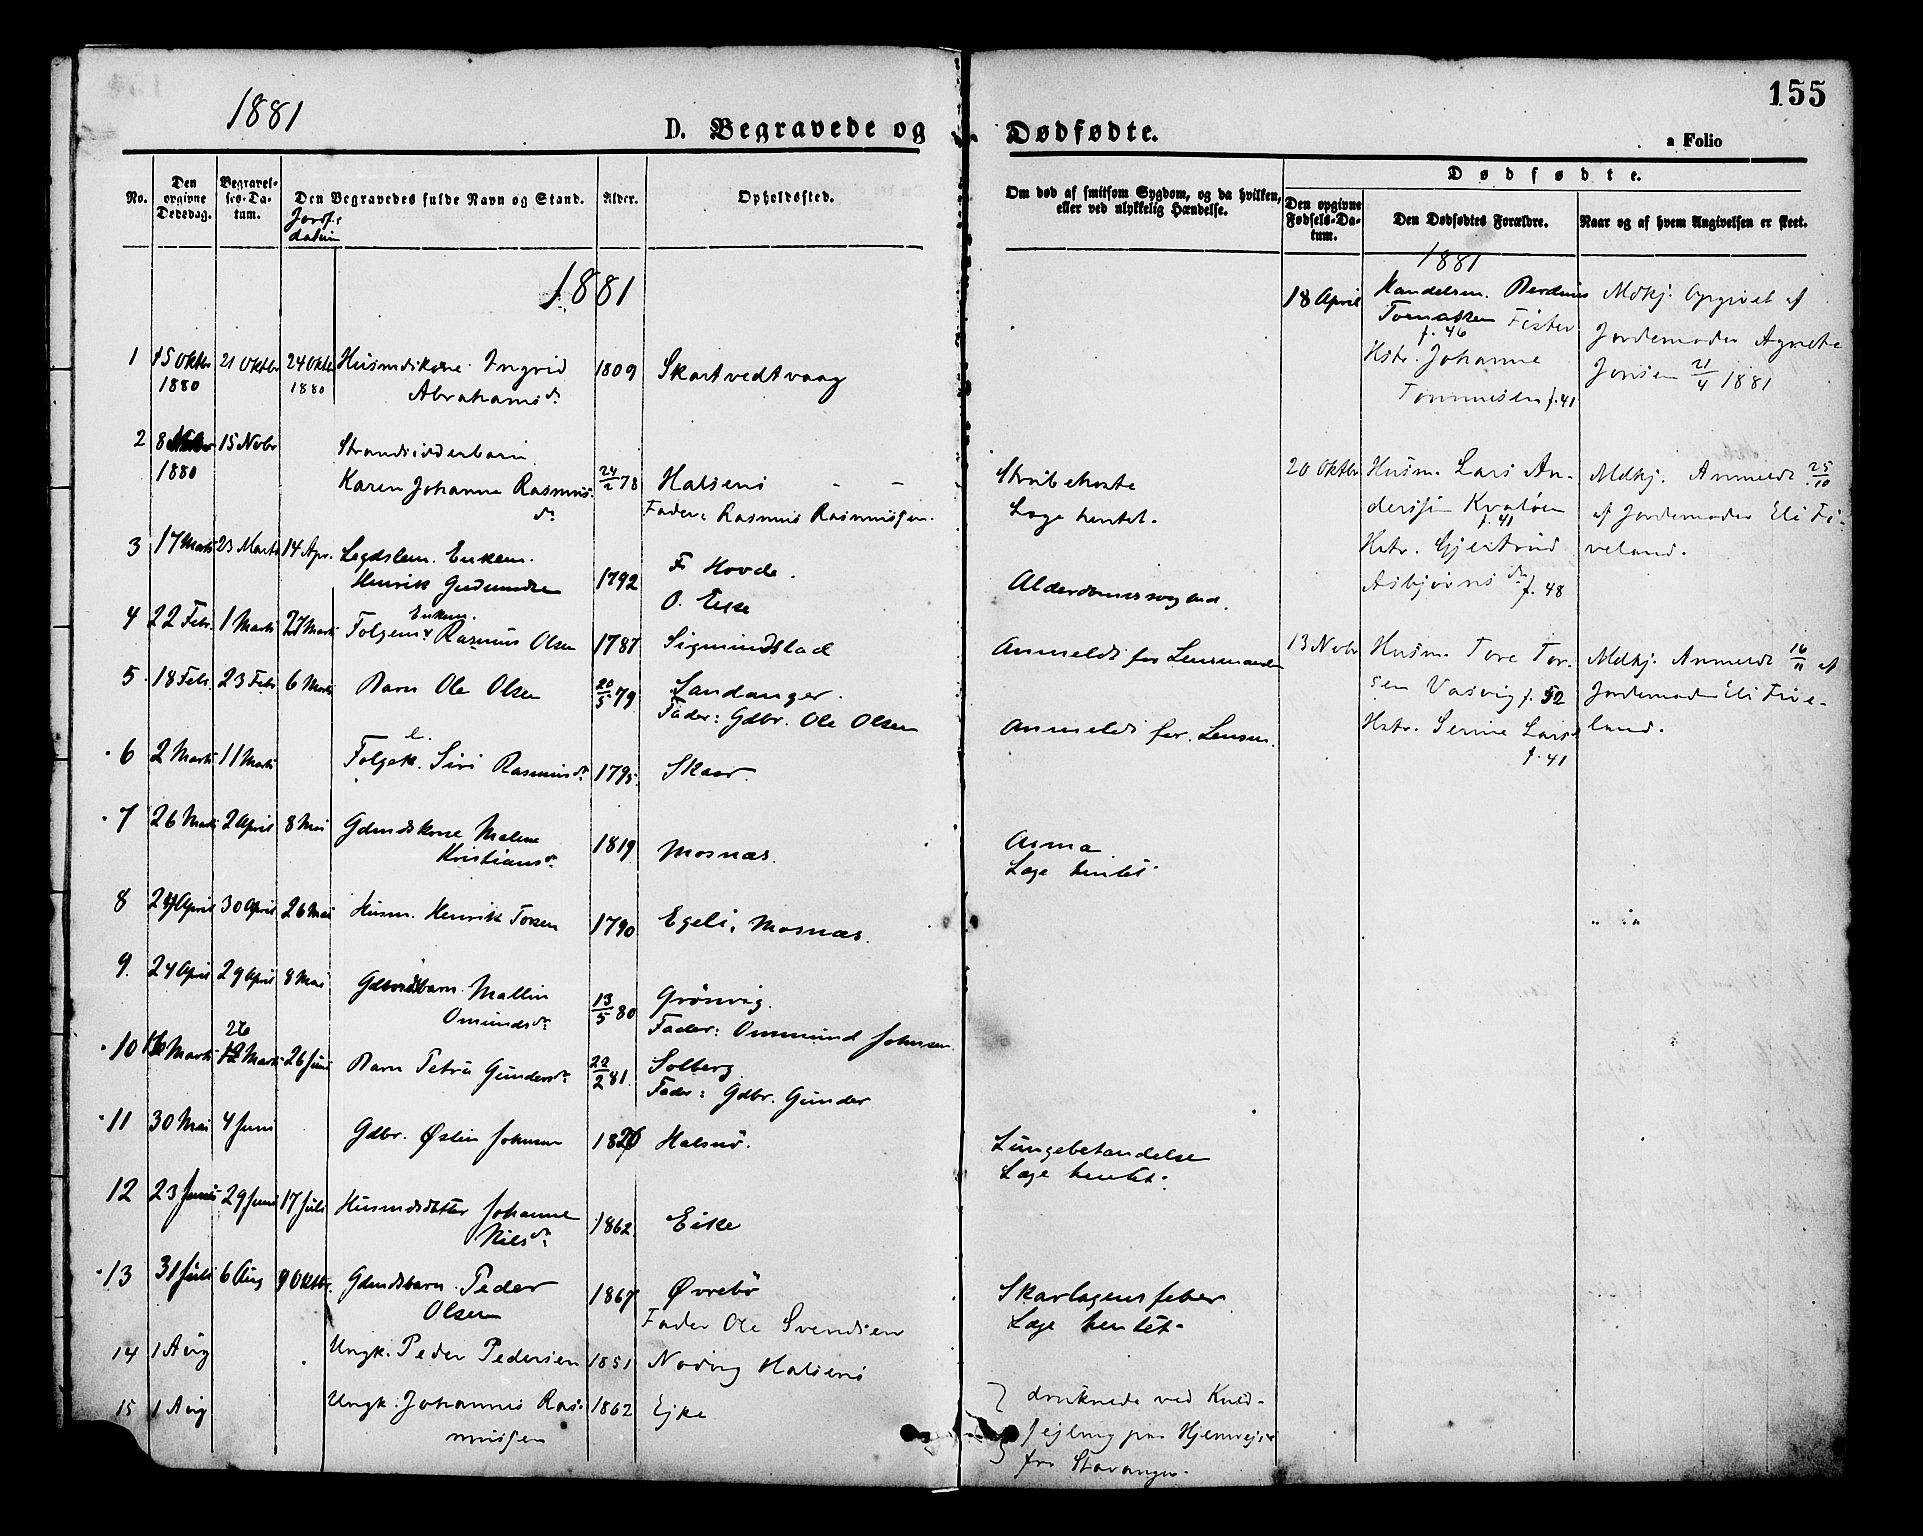 1881
155
D. Begravede og Dødfødte.
a Folio
No.
Den opgivne Dødsdag.
Begravel-
ses-Da-
tum.
Den Begravedes fulde Navn og Stand.
Jordf.
datum
Alder.
Opholdssted.
Om død af smitsom Sygdom, og da hvilken,
eller ved ulykkelig Hændelse.
Dødfødte.
Den opgivne
Fødsels-Da-
tum.
Den Dødfødtes Forældre.
Naar og af hvem Angivelsen er skeet.
1881
1 15 Oktbr 21 Oktbr 24 Oktbr Husmdskone Ingrid 1809 Skartvedtvaag
1880 1880 Abrahamsdr.
2 8 15 Novbr Strandsidderbarn
1880 Karen Johanne Rasmus- 24/2 78 Halsenö
dr. Fader: Rasmus Rasmussen.
Stribehoste
Læge hentet.
3 17 Marts 23 Marts 14 Apr. Legdslem. Enkem. F. Hovda.
Henrik Gudmundsen 1792 O. Eike
Alderdomssvaghed.
4 22 Febr. 1 Marts 27 Marts Enkem.
Folgem. Rasmus Olsen 1787 Sigmundstad
Anmeldt for Lensmanden
5 18 Febr. 23 Febr 6 Marts Barn Ole Olsen 20/5 79 Sandanger.
Fader: Gdbr. Ole Olsen
Anmeldt for Lensm.
6 2 Marts 11 Marts Folgek. Siri Rasmusdr. 1795. Skaar.
7 26 Marts 2 April 8 Mai Gdmdskone Malene
Kristiansdr. 1819 Mosnæs.
Asma
Læge hentet
8 24 April 30 April 26 Mai Husm. Henrik Torsen 1790 Egeli, Mosnæs.
9. 24 April 29 April 8 Mai Gdmdsbarn. Mallin 13/5 80 Grönvig.
Omundsdr. Fader: Ommund Johnsen
10 Marts 26 Marts 26 Juni Barn Petra Gundersdr. 22/2 81. Solberg
Fader: Gdbr. Gunder
11 30 Mai 4 Juni Gdbr. Østen Johnsen Halsnö.
Lungebetændelse
Læge hentet.
12 23 Juni 29 Juni 17 Juli Husmdsdatter Johanne 1862. Eike
Nilsdr.
13 31 Juli 6 Aug 9 Oktbr. Gdmdsbarn. Peder 1867 Øvrebö
Olsen Fader Ole Svendsen
Skarlagensfeber
Læge hentet.
14 1 Aug Ungk. Peder Pedersen 1851 Nodvig Halsenö
15 1 Aug Ungk. Johannes Ras- 1862 Ejke
mussen
druknede ved
sejling paa Hjemvejen
fra Stavanger.
1881
18 April Handelsm. Berdines
Tomassen Fister
f. 46
Hstr. Johanne
Tommesen f. 41
Mdkj. Opgivet af
Jordemoder Agnete
Jonsen 21/4 1881
20 Oktbr Husm. Lars An-
derssen Kvalöen
f. 41
Hstr. Gjertrud
Asbjörnsdr. f. 48
Mdkj. Anmeldt 25/10
af Jordemoder Eli Fi-
veland.
13 Novbr Husm. Tore Tor-
sen Vasvig f. 52
Hstr. Serine Larsd
f. 41
Mdkj. Anmeldt 16/11 af
Jordemoder Eli Five-
land.